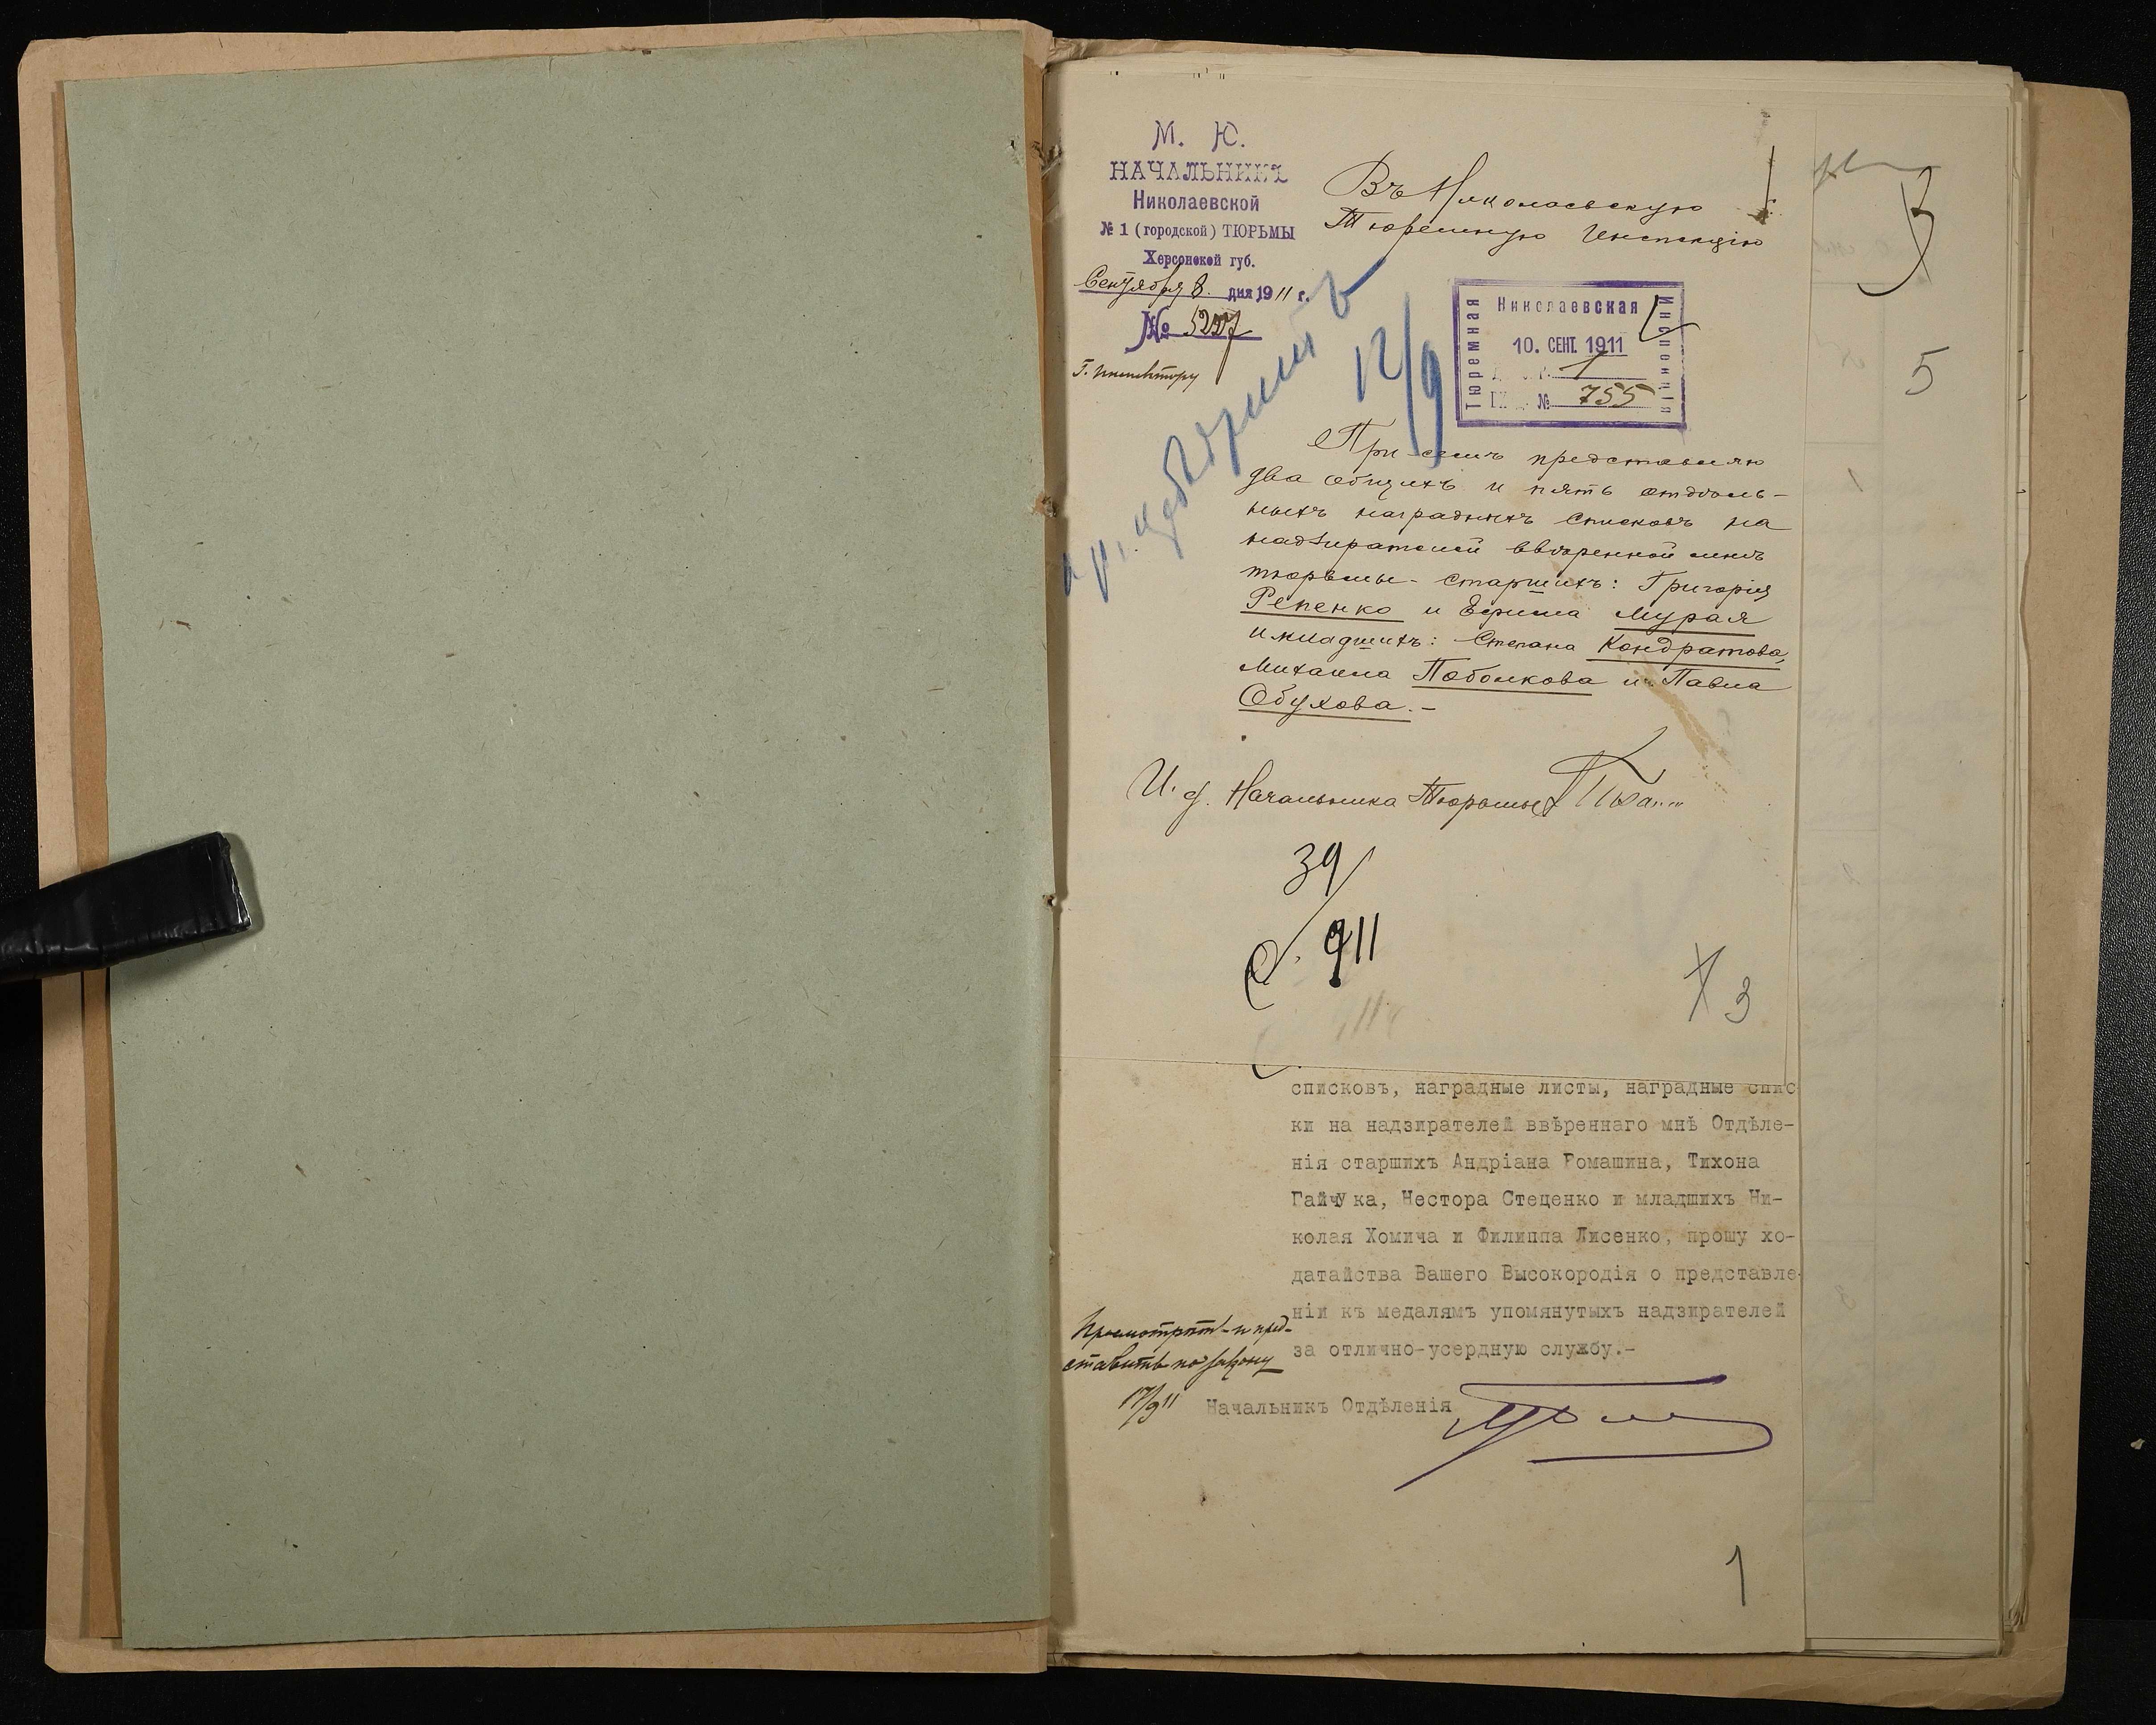 М. Ю.
НАЧАЛЬНИКЪ
Николаевской
№ 1 (городской) ТЮРЬМЫ
Херсонской губ.
Сентября 8. дня 1911 г.
№ 5297
Г. Инспектору
Въ Николаевскую
Тюремную Инспекцію
12/9
Тюремная
Николаевская
Инспекція
10. СЕНТ. 1911
1
№ 755
При семъ представляю
два общихъ и пять отдѣль-
ныхъ наградныхъ списковъ на
надзирателей ввѣренной мнѣ
тюрьмы - старшихъ: Григорія
Репенко и Ефима Мурая
и младшихъ: Степана Кондратова,
Михаила Поболкова и Павла
Обухова.-
И. д. Начальника Тюрьмы
39/
С. 911
3
списковъ, наградные листы, наградные спис-
ки на надзирателей ввѣреннаго мнѣ Отдѣле-
нія старшихъ Андріана Ромашина, Тихона
Гайчука, Нестора Стеценко и младшихъ Ни-
колая Хомича и Филиппа Лисенко, прошу хо-
датайства Вашего Высокородія о представле-
ніи къ медалямъ упомянутыхъ надзирателей
за отлично-усердную службу.-
Просмотрѣть и пред-
ставить по закону
17/9 11
Начальникъ Отдѣленія
1
5